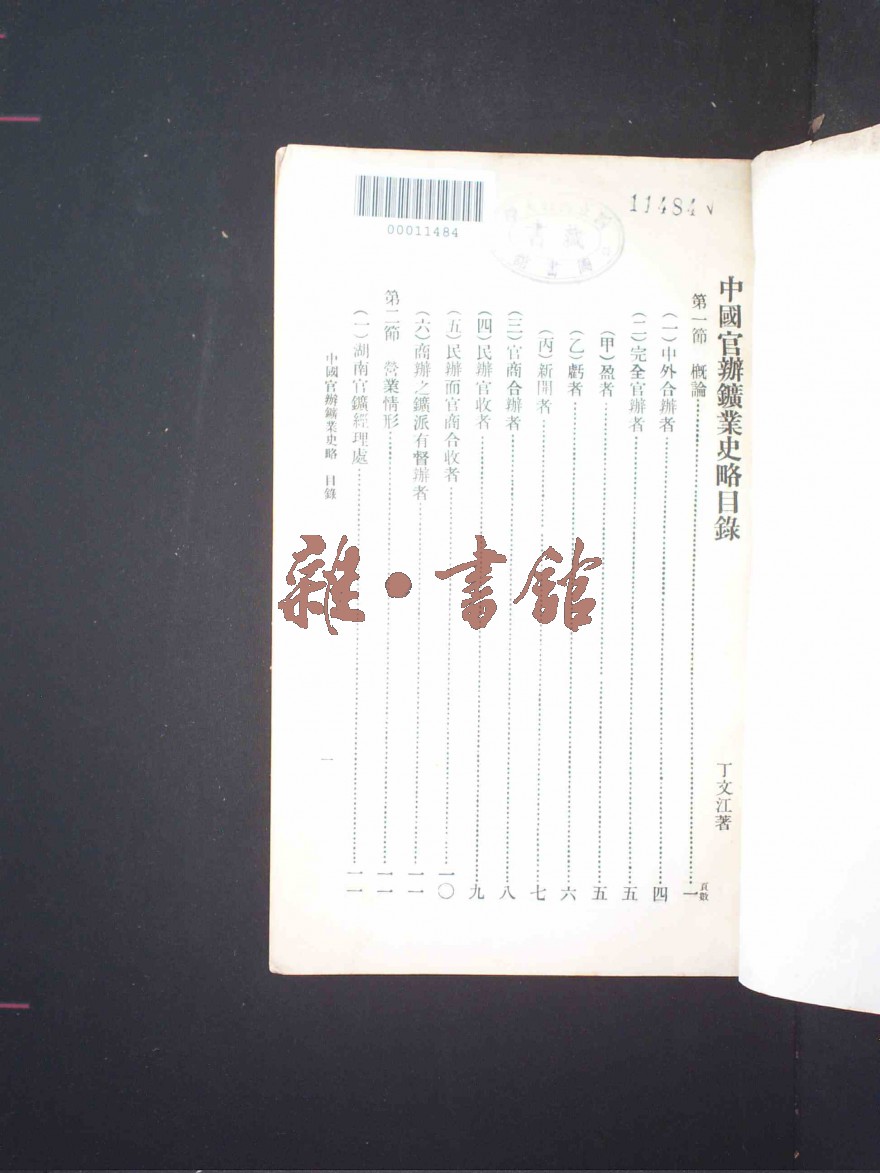 中國官辦鑛業史略目錄
丁文江著
頁數
第一節　概論……一
(一)中外合辦者……四
(二)完全官辦者……五
(甲)盈者……五
(乙)虧者……六
(丙)新開者……七
(三)官商合辦者……八
(四)民辦官收者……九
(五)民辦而官商合收者……一〇
(六)商辦之鑛派有督辦者……一一
第二節　營業情形……一一
(一)湖南官鑛經理處……一一
中國官辦鑛業史略　目錄
一
00011484
11484
藏書
雜·書館